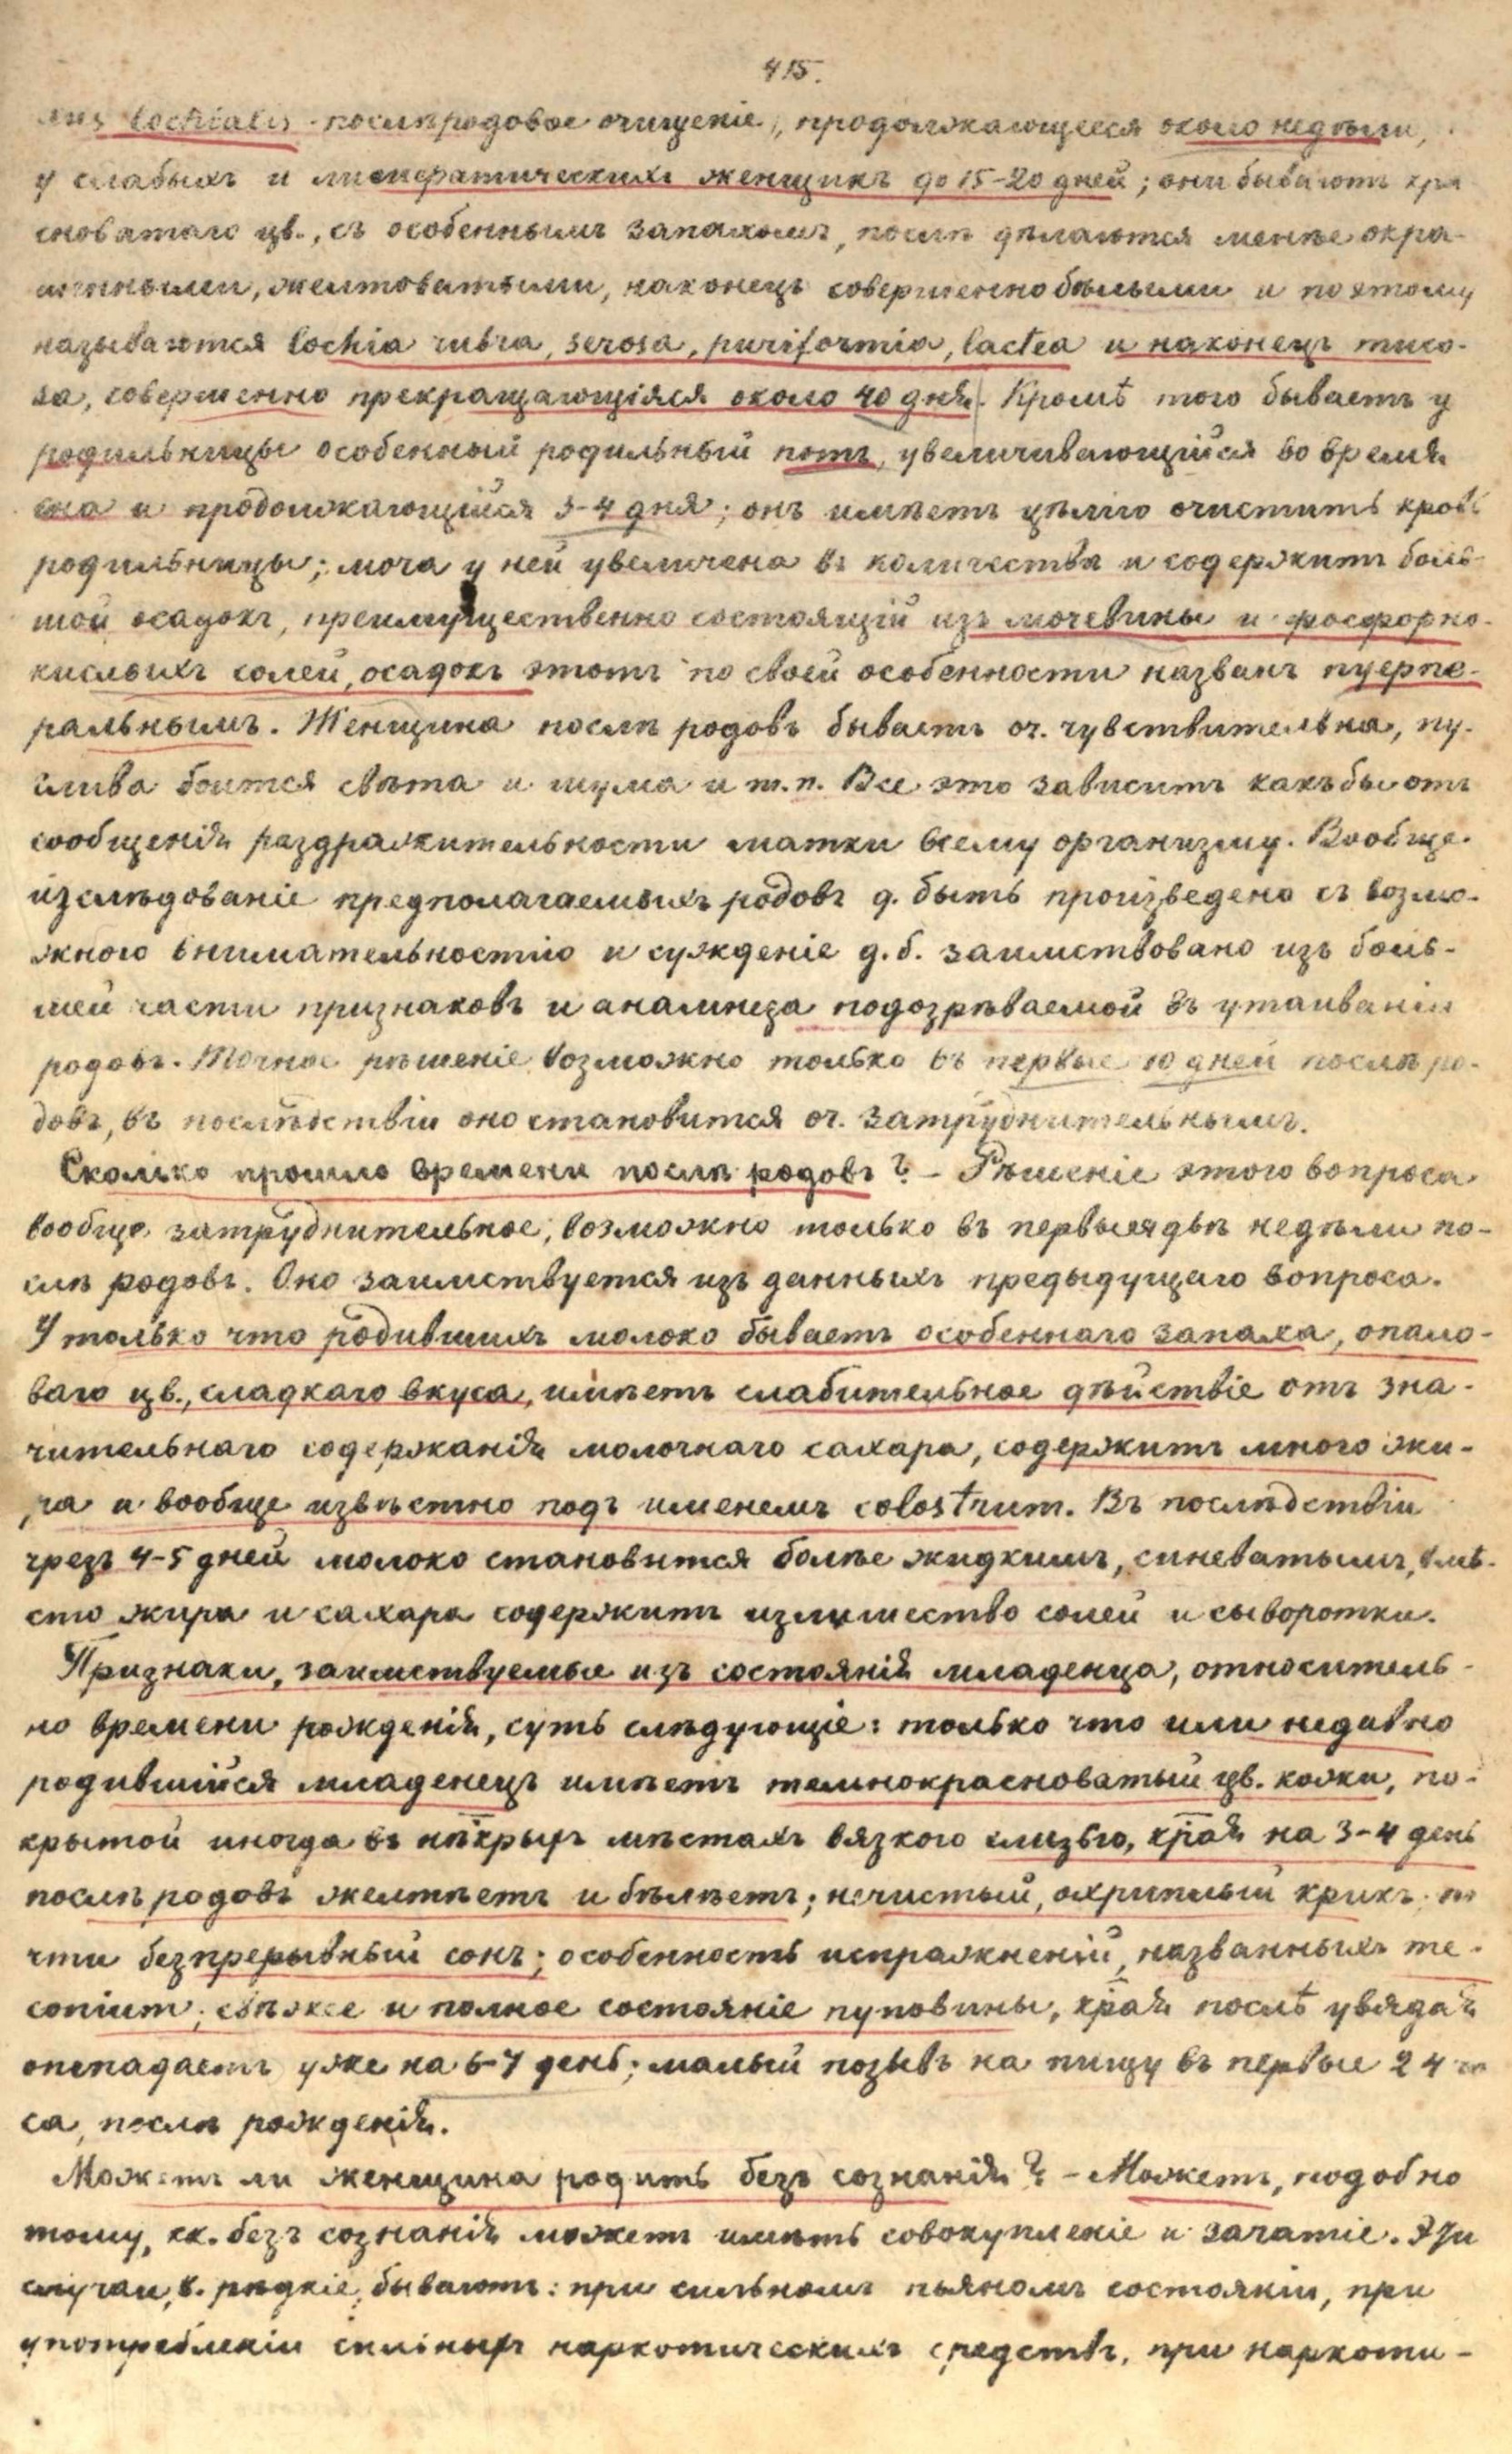 415.
lochialis - послѣродовое очищеніе, продолжающееся около недѣли,
у слабыхъ и лимфатическихъ женщинъ до 15-20 дней; они бываютъ кра
сноватаго цв., съ особеннымъ запахомъ, послѣ дѣлаются менѣе окра-
шенными, желтоватыми, наконецъ совершенно бѣлыми и поэтому
называются lochia rubra, serosa, puriformia, lactea и наконецъ muco-
sa, совершенно прекращающіяся около 40 дня. Кромѣ того бываетъ у
родильницы особенный родильный потъ, увеличивающійся во время
сна и продолжающійся 3-4 дня; онъ имѣетъ цѣлію очистить кровь
родильницы; моча у ней увеличена въ количества и содержитъ боль-
шой осадокъ, преимущественно состоящій изъ мочевины и фосфорно-
кислыхъ солей, осадокъ этотъ по своей особенности названъ пуерпе-
ральнымъ. Женщина послѣ родовъ бываетъ оч. чувствительна, пу-
глива боится свѣта и шума и т.п. Все это зависитъ какъ бы отъ
сообщенія раздражительности матки всему организму. Вообще
изслѣдованіе предполагаемыхъ родовъ д. быть произведено съ возмо-
жною внимательностію и сужденіе д.б. заимствовано изъ боль-
шей части признаковъ и анамнеза подозрѣваемой въ утаиваніи
родовъ. Точное рѣшеніе возможно только въ первые 10 дней послѣ ро-
довъ, въ послѣдствіи оно становится оч. затруднительнымъ.
Сколько прошло времени послѣ родовъ? - Рѣшеніе этого вопроса
вообще затруднительное, возможно только въ первыя двѣ недѣли по-
слѣ родовъ. Оно заимствуется изъ данныхъ предыдущаго вопроса.
У только что родившихъ молоко бываетъ особеннаго запаха, опало-
ваго цв., сладкаго вкуса, имѣетъ слабительное дѣйствіе отъ зна-
чительнаго содержанія молочнаго сахара, содержитъ много жи-
ра и вообще извѣстно подъ именемъ colostrum. Въ послѣдствіи
чрезъ 4-5 дней молоко становится болѣе жидкимъ, синеватымъ, вмѣ-
сто жира и сахара содержитъ излишество солей и сыворотки.
Признаки, заимствуемые изъ состоянія младенца, относитель-
но времени рожденія, суть слѣдующіе: только что или недавно
родившійся младенецъ имѣетъ темнокрасноватый цв. кожи, по-
крытой иногда въ нѣкрыхъ мѣстахъ вязкою слизью, края на 3-4 день
послѣ родовъ желтѣетъ и бѣлѣетъ; нечистый, охриплый крикъ; по
чти безпрерывный сонъ; особенность испражненій, названныхъ me-
conium; свѣжее и полное состояніе пуповины, края послѣ увядая
отпадаетъ уже на 6-7 день; малый позывъ на пищу въ первые 24 ча
са, послѣ рожденія.
Можетъ ли женщина родить безъ сознанія? - Можетъ, подобно
тому, кк. безъ сознанія можетъ имѣть совокупленіе и зачатіе. Эти
случаи, рѣдкіе, бываютъ: при сильномъ пьяномъ состояніи, при
употребленіи сильныхъ наркотическихъ средствъ, при наркоти-